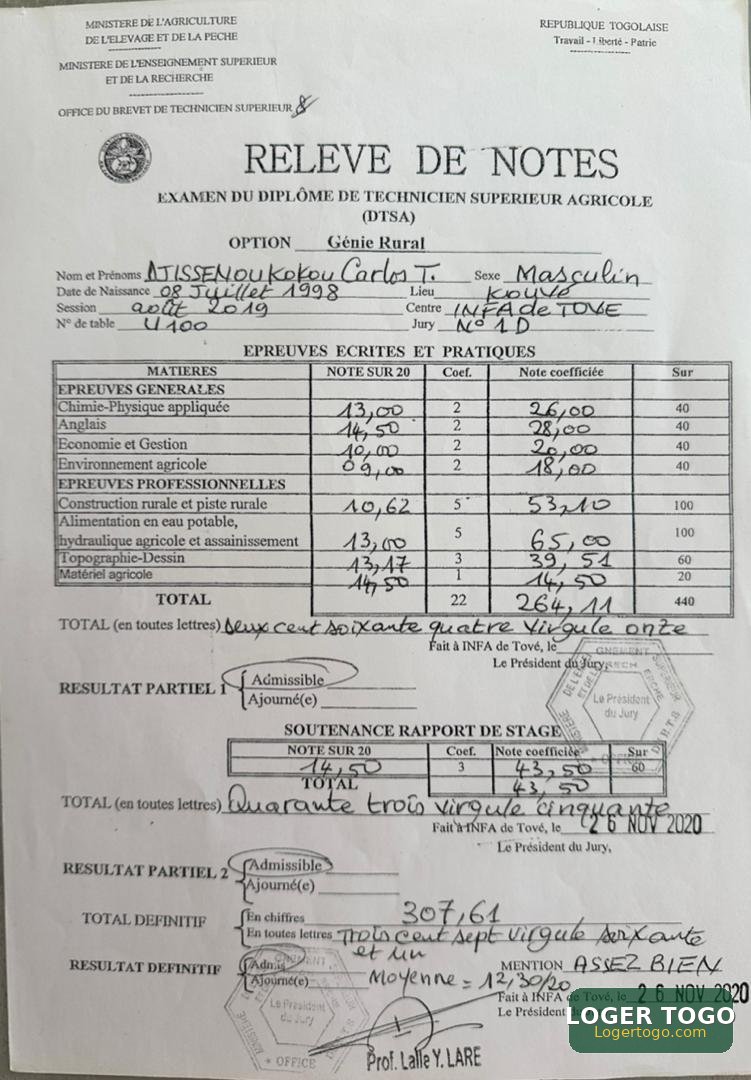 MINISTERE DE L'AGRICULTURE
DE L'ELEVAGE ET DE LA PECHE
REPUBLIQUE TOGOLAISE
Travail - Liberté - Patrie
MINISTERE DE L'ENSEIGNEMENT SUPERIEUR
ET DE LA RECHERCHE
OFFICE DU BREVET DE TECHNICIEN SUPERIEUR
RELEVE DE NOTES
EXAMEN DU DIPLÔME DE TECHNICIEN SUPERIEUR AGRICOLE
(DTSA)
OPTION Génie Rural
Nom et Prénoms AJISSENOU Kokou Carlos T. Sexe Masculin
Date de Naissance 08 Juillet 1998 Lieu Kouvé
Session août 2019 Centre INFA de TOVE
N° de table U100 Jury N° 1D
EPREUVES ECRITES ET PRATIQUES
MATIERES NOTE SUR 20 Coef. Note coefficiée Sur
EPREUVES GENERALES
Chimie-Physique appliquée 13,00 2 26,00 40
Anglais 14,50 2 28,00 40
Economie et Gestion 10,00 2 20,00 40
Environnement agricole 09,00 2 18,00 40
EPREUVES PROFESSIONNELLES
Construction rurale et piste rurale 10,62 5 53,10 100
Alimentation en eau potable,
hydraulique agricole et assainissement 13,00 5 65,00 100
Topographie-Dessin 13,17 3 39,51 60
Matériel agricole 14,50 1 14,50 20
TOTAL 22 264,11 440
TOTAL (en toutes lettres) Deux cent soixante quatre virgule onze
Fait à INFA de Tové, le
Le Président du Jury,
RESULTAT PARTIEL 1 Admissible
Ajourné(e)
Le Président
du Jury
SOUTENANCE RAPPORT DE STAGE
NOTE SUR 20 Coef. Note coefficiée Sur
14,50 3 43,50 60
TOTAL 43,50
TOTAL (en toutes lettres) Quarante trois virgule cinquante
Fait à INFA de Tové, le 26 NOV 2020
Le Président du Jury,
RESULTAT PARTIEL 2 Admissible
Ajourné(e)
TOTAL DEFINITIF En chiffres 307,61
En toutes lettres Trois cent sept virgule soixante
et un
RESULTAT DEFINITIF Admis MENTION ASSEZ BIEN
Ajourné(e) Moyenne = 12,30/20
Fait à INFA de Tové, le 26 NOV 2020
Le Président du
Le Président
du Jury
OFFICE
Prof. Lalle Y. LARE
LOGER TOGO
Logertogo.com